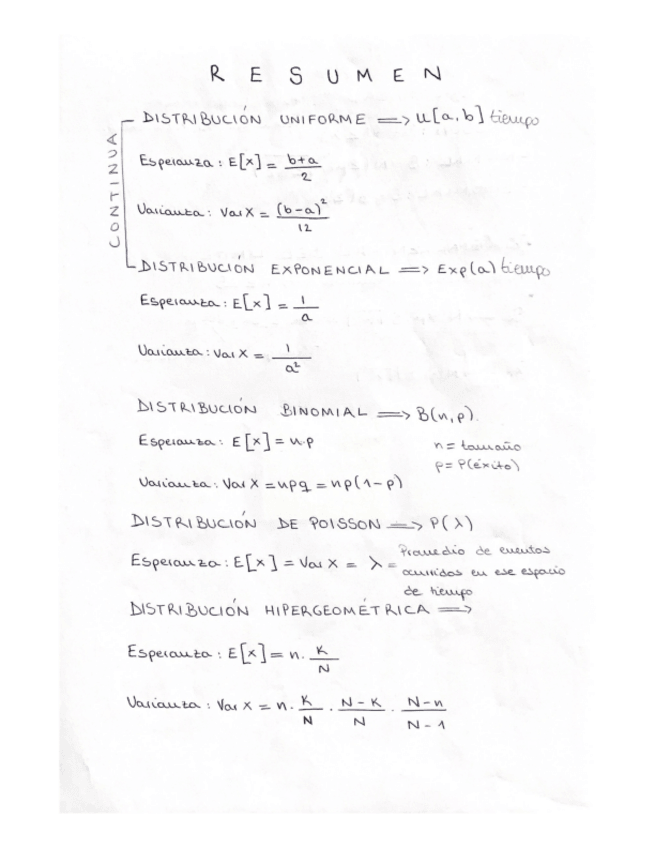 RESUMEN
CONTINUA
DISTRIBUCIÓN UNIFORME => U[a,b] tiempo
Esperanza: E[x] = b+a / 2
Varianza: Var X = (b-a)² / 12
DISTRIBUCIÓN EXPONENCIAL => Exp(a) tiempo
Esperanza: E[x] = 1 / a
Varianza: Var X = 1 / a²
DISTRIBUCIÓN BINOMIAL => B(n,p).
Esperanza: E[x] = n·p
n = tamaño
p = P(éxito)
Varianza: Var X = npq = np(1-p)
DISTRIBUCIÓN DE POISSON => P(λ)
Esperanza: E[x] = Var X = λ = Promedio de eventos
ocurridos en ese espacio
de tiempo
DISTRIBUCIÓN HIPERGEOMÉTRICA =>
Esperanza: E[x] = n · K / N
Varianza: Var X = n · K / N · N-K / N · N-n / N-1